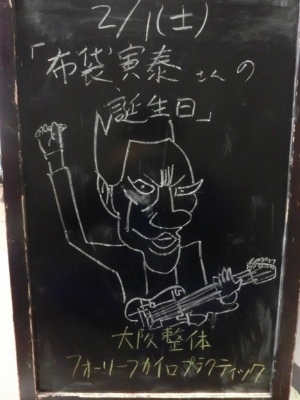 2/1(土)
「布袋寅泰さんの
誕生日」
大阪整体
フォーリーフカイロプラクティック